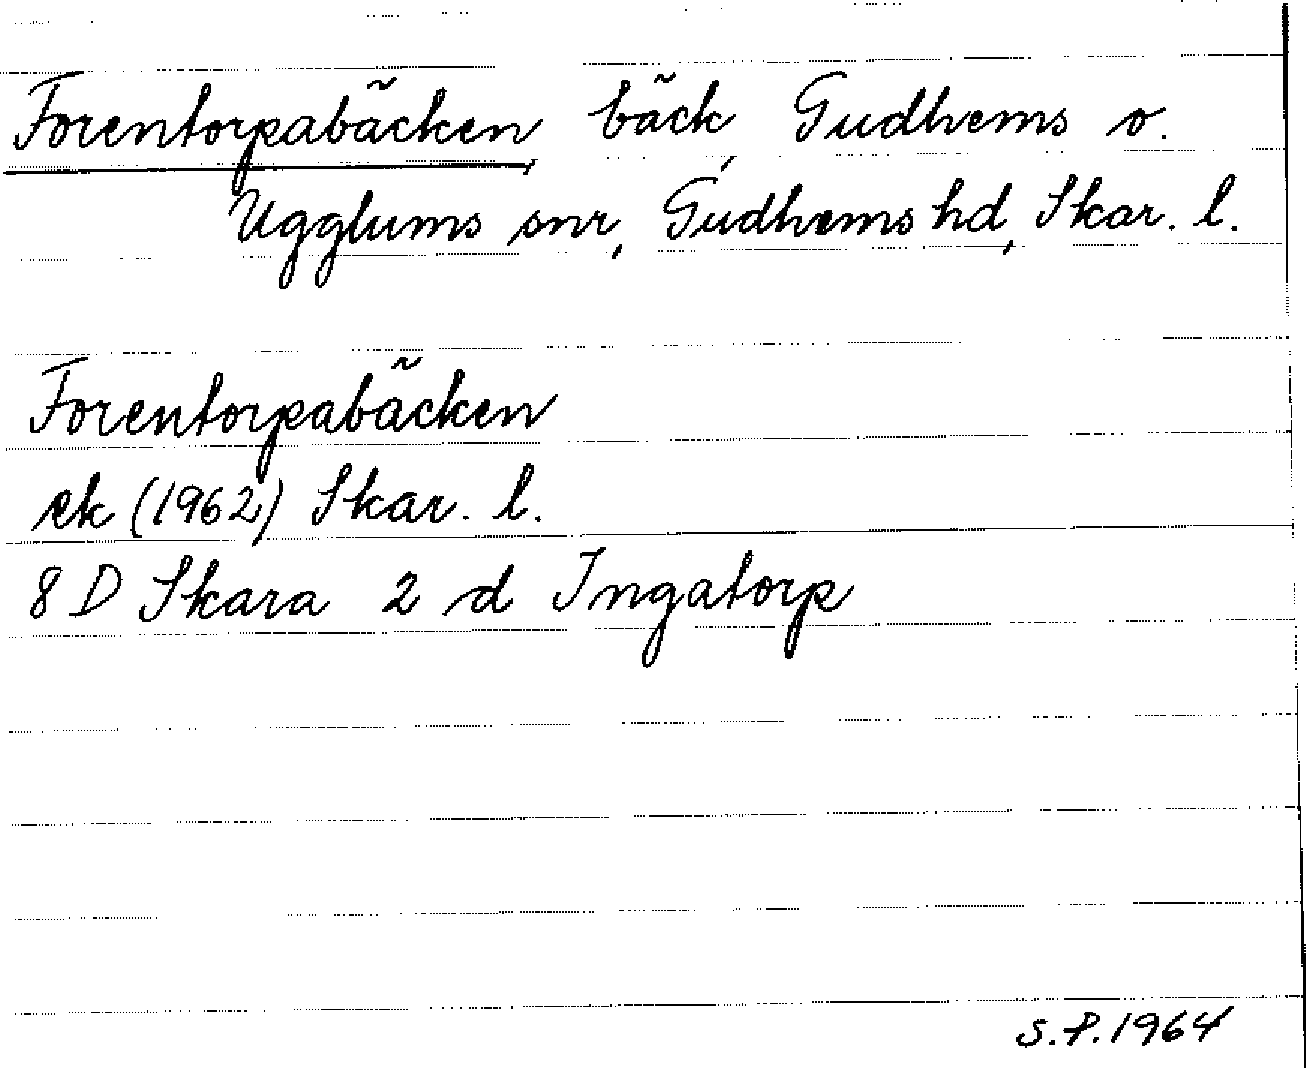 Forentorpabäcken, bäck, Gudhems o.
Ugglums snr, Gudhems hd, Skar. l.
Forentorpabäcken
ek (1962) Skar. l.
8 D Skara 2 d Ingatorp
S.P. 1964